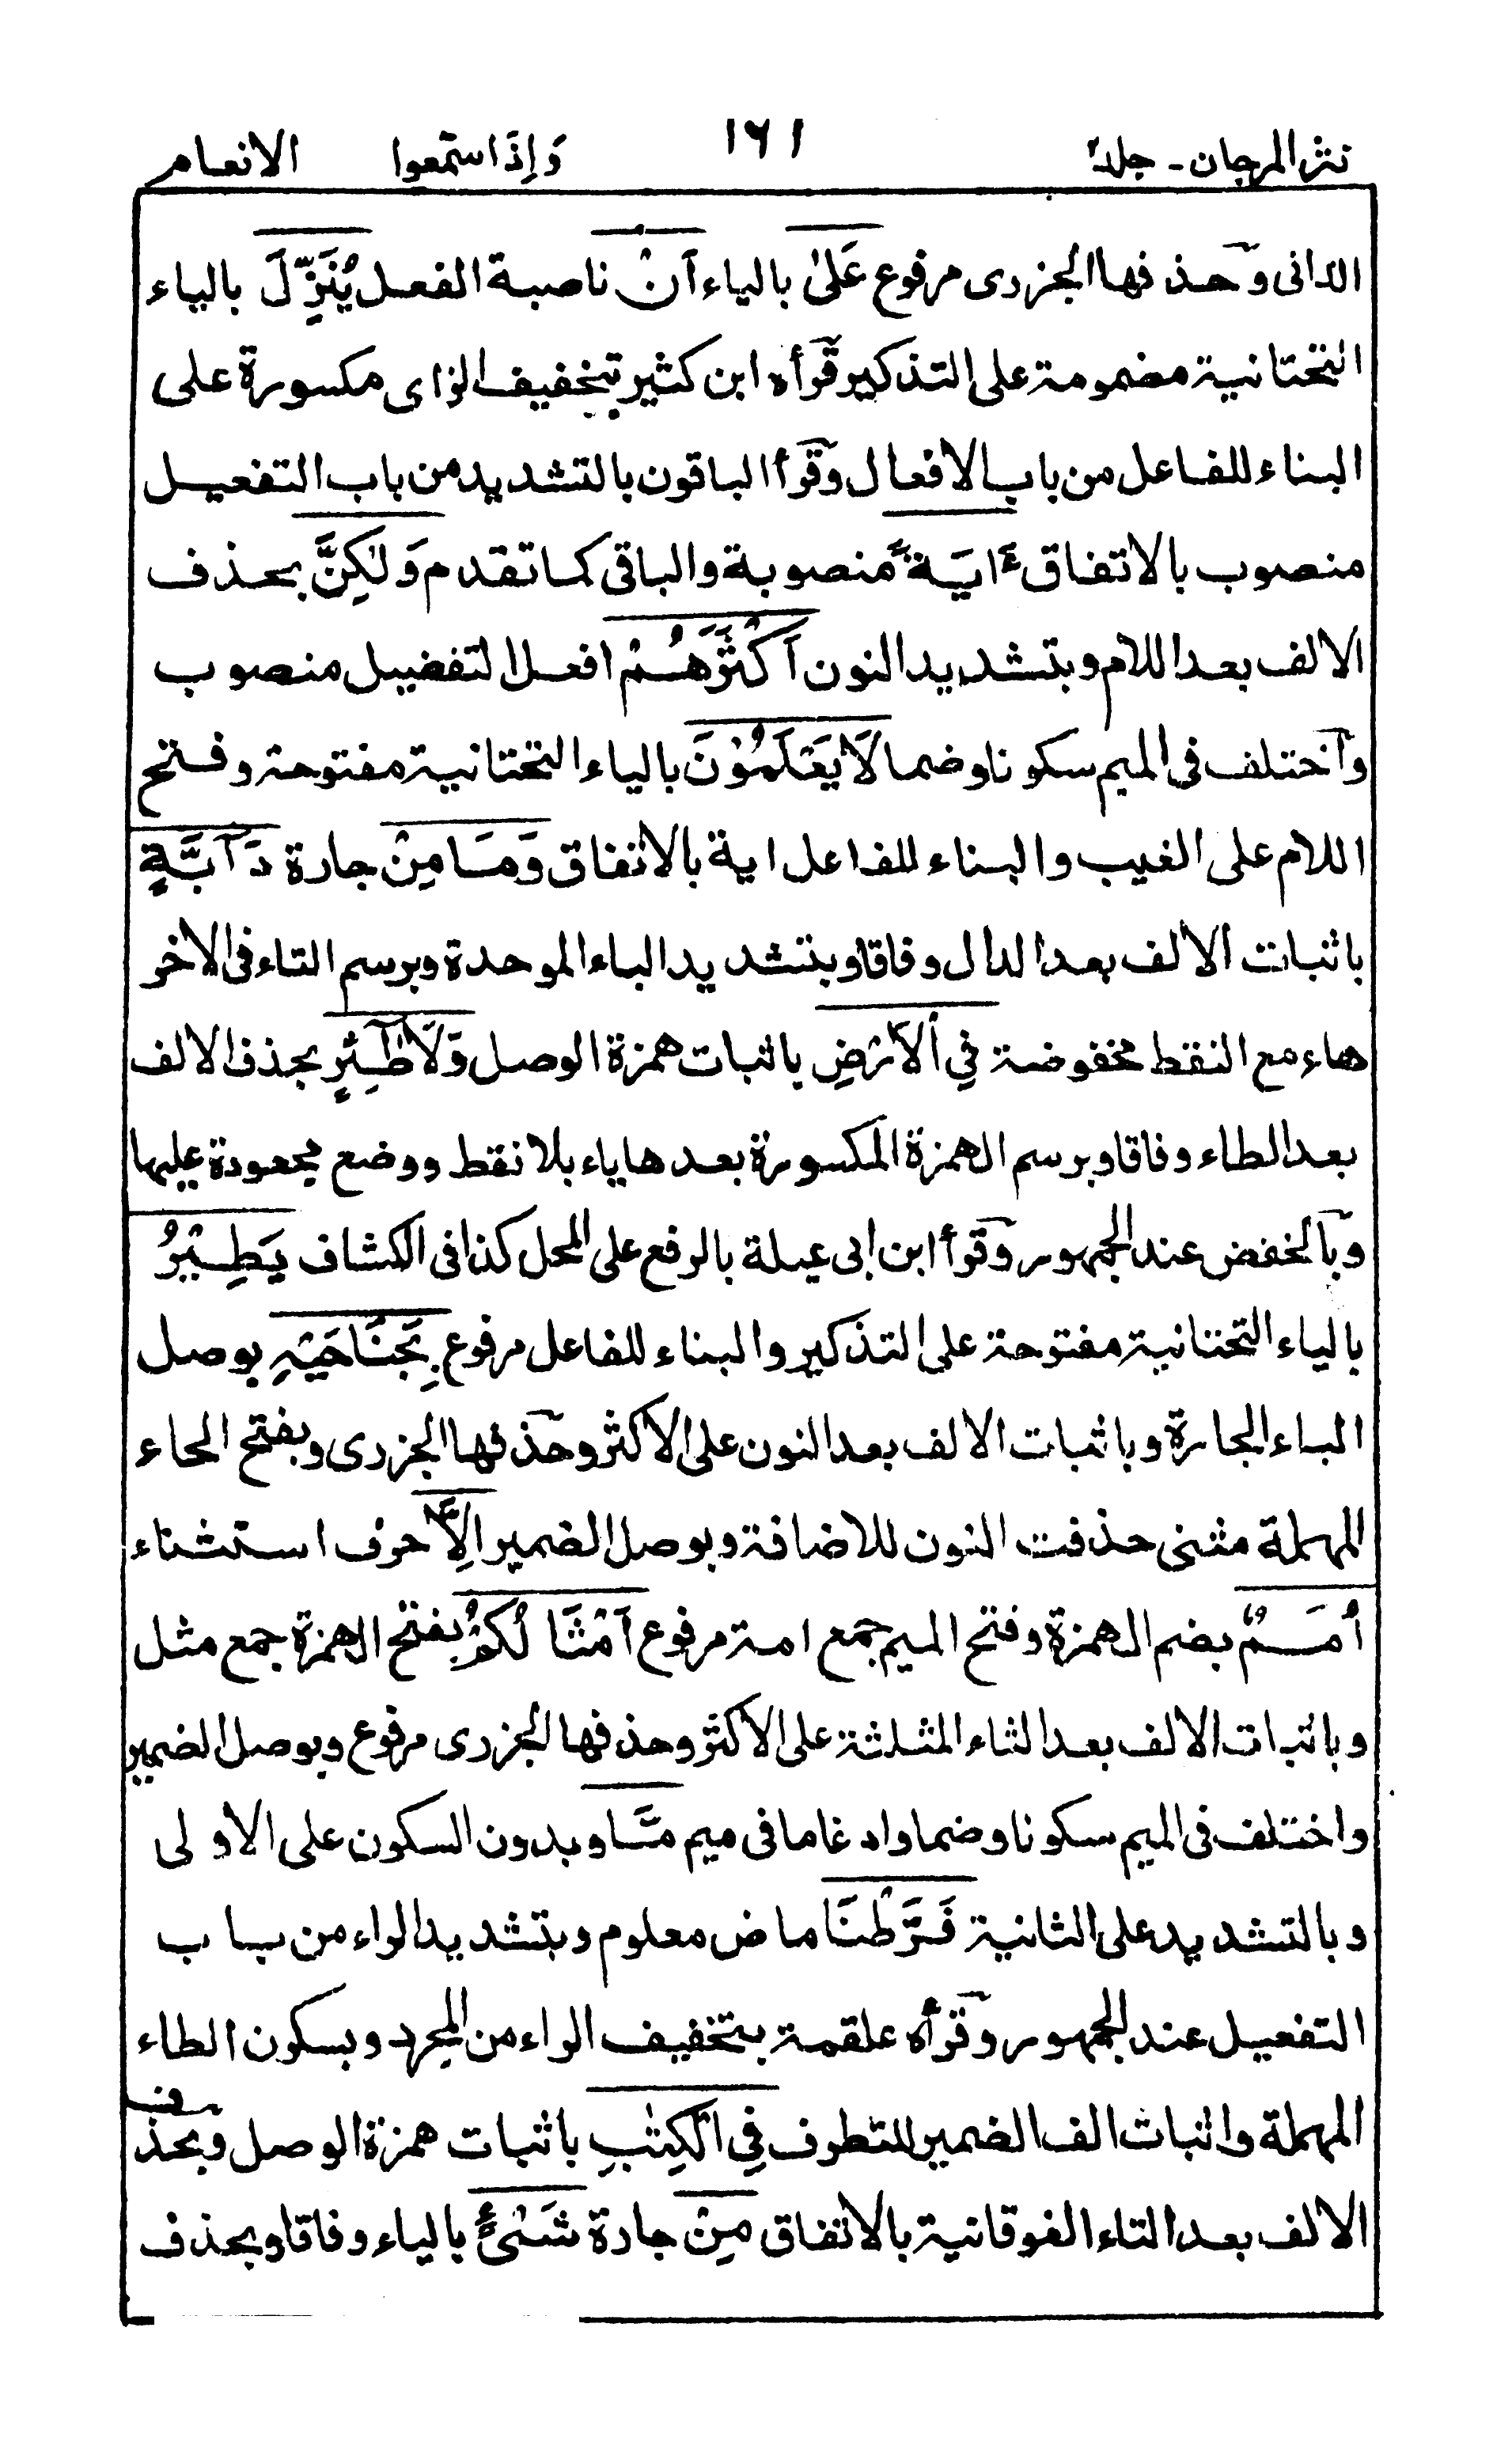 نثر المرجان - جلد٢ ١٦١ وَاِذَا سمّعوا الانعام
الدانى وحذفها الجزرى مرفوع عَلىٰ بالياء اَنْ ناصبة الفعل يُنَزِّلَ بالياء
التحتانية مضمومة على التذكير قرأه ابن كثير بتخفيف الزاى مكسورة على
البناء للفاعل من باب الافعال وقرأ الباقون بالتشديد من باب التفعيل
منصوب بالاتفاق ءَايَةً منصوبة والباقى كما تقدم وَلٰكِنَّ بحذف
الالف بعد اللام وبتشديد النون اَكْثَرَهُمْ افعل التفضيل منصوب
واختلف فى الميم سكونا وضما لَا يَعْلَمُوْنَ بالياء التحتانية مفتوحة وفتح
اللام على الغيب والبناء للفاعل اية بالاتفاق وَمَا مِنْ جارة دَآبَّةٍ
باثبات الالف بعد الدال وفاقا وبتشديد الباء الموحدة وبرسم التاء فى الاخر
هاء مع النقط مخفوضة فِي الْاَرْضِ باثبات همزة الوصل وَلَا طٰٓئِرٍ بحذف الالف
بعد الطاء وفاقا وبرسم الهمزة المكسورة بعدها ياء بلا نقط ووضع مجعودة عليها
وبالخفض عند الجمهور وقرأ ابن ابى عبلة بالرفع على المحل كذا فى الكشاف يَطِيْرُ
بالياء التحتانية مفتوحة على التذكير والبناء للفاعل مرفوع بِجَنَاحَيْهِ بوصل
الباء الجارة وباثبات الالف بعد النون على الاكثر وحذفها الجزرى وبفتح الحاء
المهملة مثنى حذفت النون للاضافة وبوصل الضمير اِلَّآ حرف استثناء
اُمَمٌ بضم الهمزة وفتح الميم جمع امة مرفوع اَمْثَالُكُمْ بفتح الهمزة جمع مثل
وباثبات الالف بعد الثاء المثلثة على الاكثر وحذفها الجزرى مرفوع وبوصل الضمير
واختلف فى الميم سكونا وضما وادغاما فى ميم مَّا وبدون السكون على الاولى
وبالتشديد على الثانية فَرَّطْنَا ماض معلوم وبتشديد الراء من باب
التفعيل عند الجمهور وقرأه علقمة بتخفيف الراء من المجرد وبسكون الطاء
المهملة واثبات الف الضمير للتطرف فِي الْكِتٰبِ باثبات همزة الوصل وبحذف
الالف بعد التاء الفوقانية بالاتفاق مِنْ جارة شَيْءٍ بالياء وفاقا وبحذف